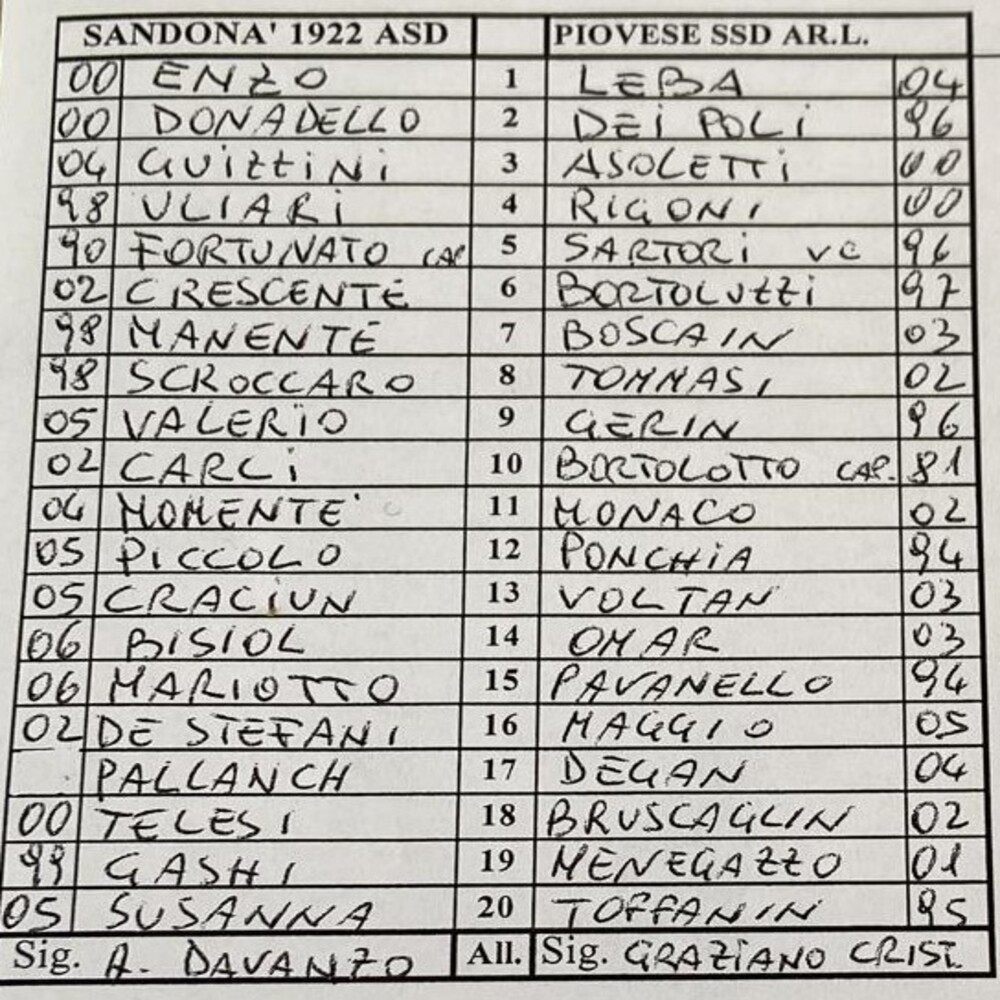 SANDONA' 1922 ASD PIOVESE SSD AR.L.
00 ENZO 1 LEBA 04
00 DONADELLO 2 DEI POLI 96
04 GUIZZINI 3 ASOLETTI 00
98 ULIARI 4 RIGONI 00
90 FORTUNATO CAP 5 SARTORI VC 96
02 CRESCENTE 6 BORTOLUZZI 97
98 MANENTE 7 BOSCAIN 03
98 SCROCCARO 8 TOMMASI 02
05 VALERIO 9 GERIN 96
02 CARLI 10 BORTOLOTTO CAP. 81
04 MOMENTE' 11 MONACO 02
05 PICCOLO 12 PONCHIA 94
05 CRACIUN 13 VOLTAN 03
06 BISIOL 14 OMAR 03
06 MARIOTTO 15 PAVANELLO 94
02 DE STEFANI 16 MAGGIO 05
PALLANCH 17 DEGAN 04
00 TELESI 18 BRUSCAGLIN 02
99 GASHI 19 MENEGAZZO 01
05 SUSANNA 20 TOFFANIN 95
Sig. A. DAVANZO All. Sig. GRAZIANO CRISI.